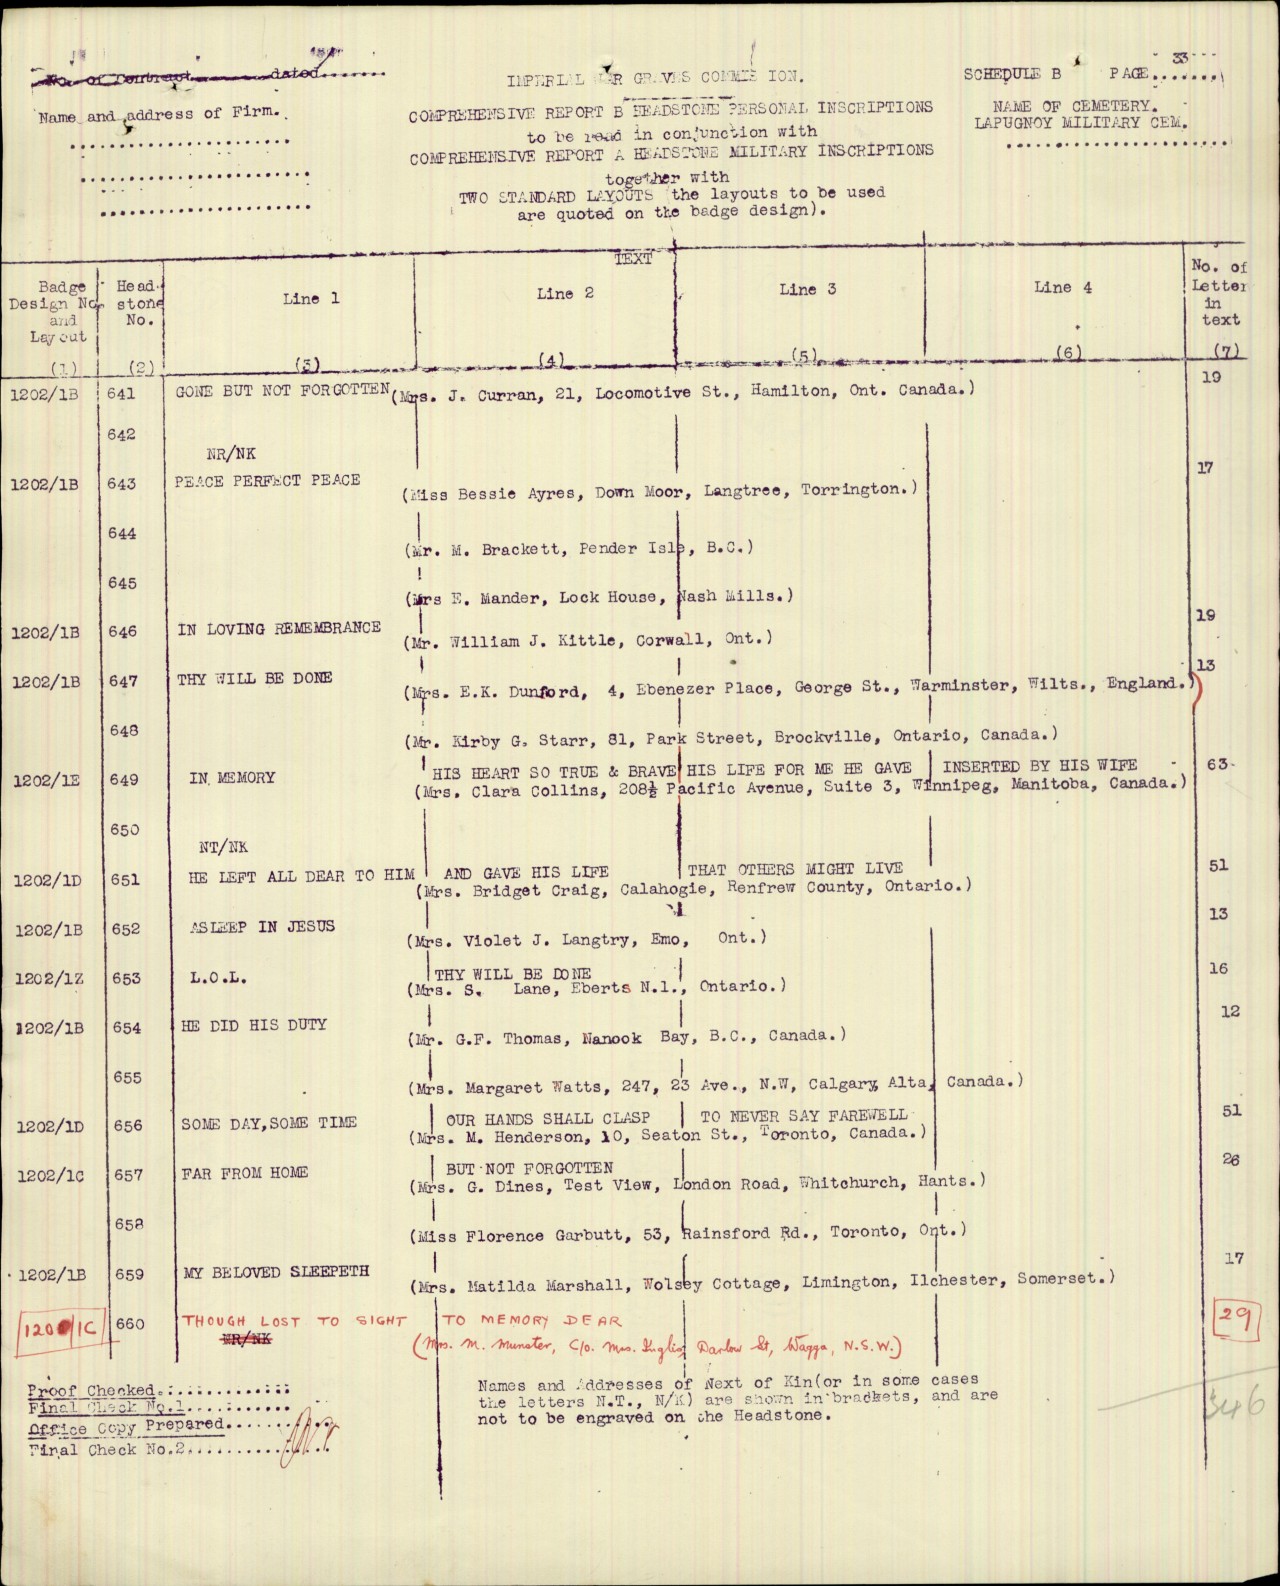 No. of Contract dated........
Name and address of Firm.
IMPERIAL WAR GRAVES COMMISSION.
COMPREHENSIVE REPORT B HEADSTONE PERSONAL INSCRIPTIONS
to be read in conjunction with
COMPREHENSIVE REPORT A HEADSTONE MILITARY INSCRIPTIONS
together with
TWO STANDARD LAYOUTS (the layouts to be used
are quoted on the badge design).
SCHEDULE B PAGE 33
NAME OF CEMETERY.
LAPUGNOY MILITARY CEM.
TEXT
Badge Design No. and Layout Head-stone No. Line 1 Line 2 Line 3 Line 4 No. of Letter in text
(1) (2) (3) (4) (5) (6) (7)
1202/1B 641 GONE BUT NOT FORGOTTEN (Mrs. J. Curran, 21, Locomotive St., Hamilton, Ont. Canada.) 19
642 NR/NK
1202/1B 643 PEACE PERFECT PEACE (Miss Bessie Ayres, Down Moor, Langtree, Torrington.) 17
644 (Mr. M. Brackett, Pender Isle, B.C.)
645 (Mrs E. Mander, Lock House, Nash Mills.)
1202/1B 646 IN LOVING REMEMBRANCE (Mr. William J. Kittle, Corwall, Ont.) 19
1202/1B 647 THY WILL BE DONE (Mrs. E.K. Dunford, 4, Ebenezer Place, George St., Warminster, Wilts., England.) 13
648 (Mr. Kirby G. Starr, 81, Park Street, Brockville, Ontario, Canada.)
1202/1E 649 IN MEMORY HIS HEART SO TRUE & BRAVE HIS LIFE FOR ME HE GAVE INSERTED BY HIS WIFE 63
(Mrs. Clara Collins, 208½ Pacific Avenue, Suite 3, Winnipeg, Manitoba, Canada.)
650 NT/NK
1202/1D 651 HE LEFT ALL DEAR TO HIM AND GAVE HIS LIFE THAT OTHERS MIGHT LIVE 51
(Mrs. Bridget Craig, Calahogie, Renfrew County, Ontario.)
1202/1B 652 ASLEEP IN JESUS (Mrs. Violet J. Langtry, Emo, Ont.) 13
1202/1Z 653 L.O.L. THY WILL BE DONE 16
(Mrs. S. Lane, Eberts N.1., Ontario.)
1202/1B 654 HE DID HIS DUTY (Mr. G.F. Thomas, Nanook Bay, B.C., Canada.) 12
655 (Mrs. Margaret Watts, 247, 23 Ave., N.W, Calgary, Alta, Canada.)
1202/1D 656 SOME DAY,SOME TIME OUR HANDS SHALL CLASP TO NEVER SAY FAREWELL 51
(Mrs. M. Henderson, 10, Seaton St., Toronto, Canada.)
1202/1C 657 FAR FROM HOME BUT NOT FORGOTTEN 26
(Mrs. G. Dines, Test View, London Road, Whitchurch, Hants.)
658 (Miss Florence Garbutt, 53, Rainsford Rd., Toronto, Ont.)
1202/1B 659 MY BELOVED SLEEPETH (Mrs. Matilda Marshall, Wolsey Cottage, Limington, Ilchester, Somerset.) 17
660 THOUGH LOST TO SIGHT TO MEMORY DEAR 29
NR/NK (Mrs. M. Munster, C/o. Mrs. Inglis, Darlow St, Wagga, N.S.W.)
Names and Addresses of Next of Kin(or in some cases
the letters N.T., N/K) are shown in brackets, and are
not to be engraved on the Headstone.
346
Proof Checked.
Final Check No.1
Office Copy Prepared
Final Check No.2